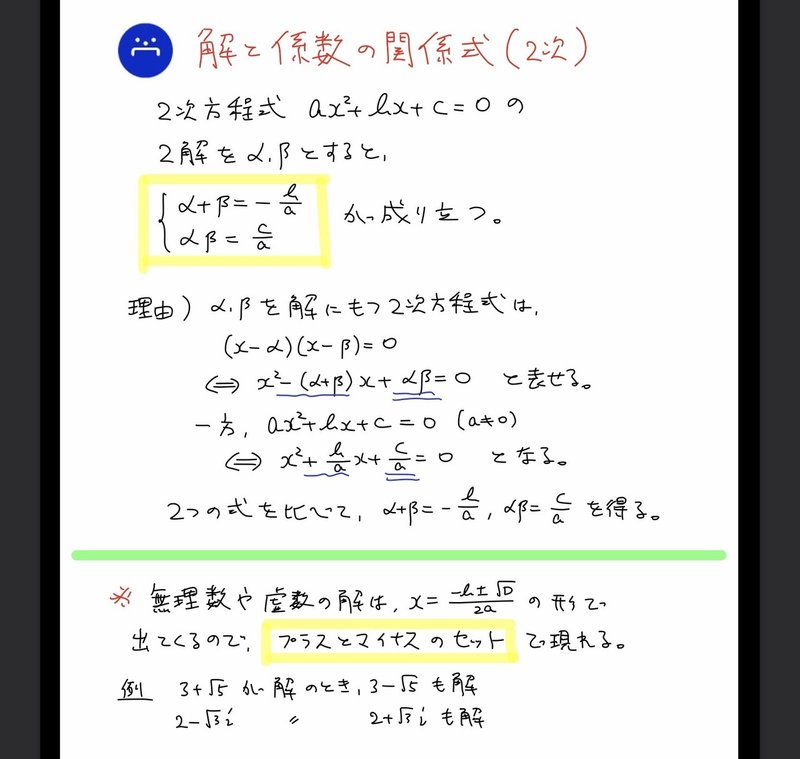 解と係数の関係式(2次)
2次方程式 ax²+bx+c=0 の
2解をα,βとすると,
{ α+β=-b/a
αβ=c/a が成り立つ。
理由) α,βを解にもつ2次方程式は,
(x-α)(x-β)=0
⇔ x²-(α+β)x+αβ=0 と表せる。
一方, ax²+bx+c=0 (a≠0)
⇔ x²+b/a x+c/a=0 となる。
2つの式を比べて, α+β=-b/a, αβ=c/a を得る。
※ 無理数や虚数の解は, x=(-b±√D)/2a の形で
出てくるので, プラスとマイナスのセット で現れる。
例 3+√5 が解のとき, 3-√5 も解
2-√3i 〃 2+√3i も解